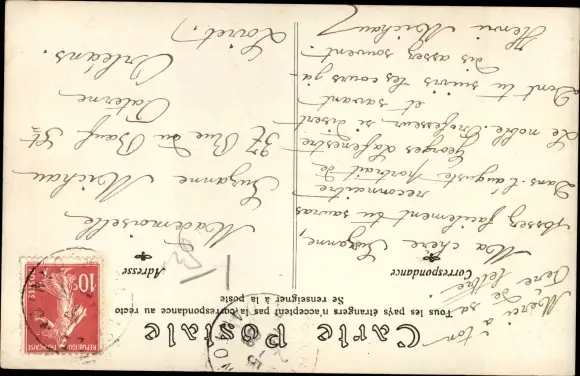 Carte Postale
Tous les pays étrangers n'acceptent pas la correspondance au recto
Se renseigner à la poste
Correspondance
Adresse
Merci à ton
de sa
lettre
Ma chère Suzanne,
Assez facilement tu sauras
reconnaitre
Dans l'auguste portrait de
Georges Lafenestre
Le noble Professeur, si disert
et savant
Dont tu suivis les cours ja-
dis assez souvent.
Henri Michau
Mademoiselle
Suzanne Michau
37 Rue du Bœuf St
Paterne
Orléans.
(Loiret.)
10c
POSTES